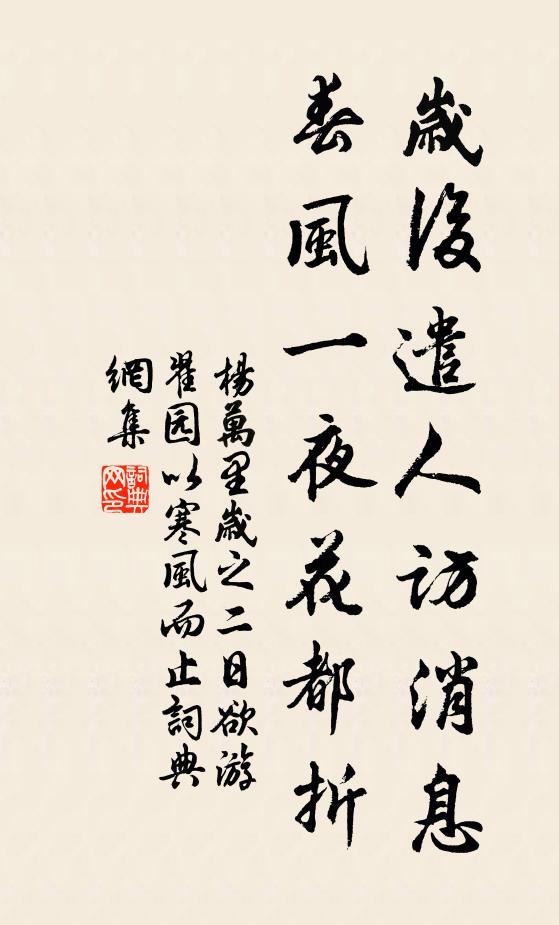 歲後遣人訪消息
春風一夜花都折
楊萬里歲之二日欲游
翟园以寒風而止詞典
網集
詞典
网印